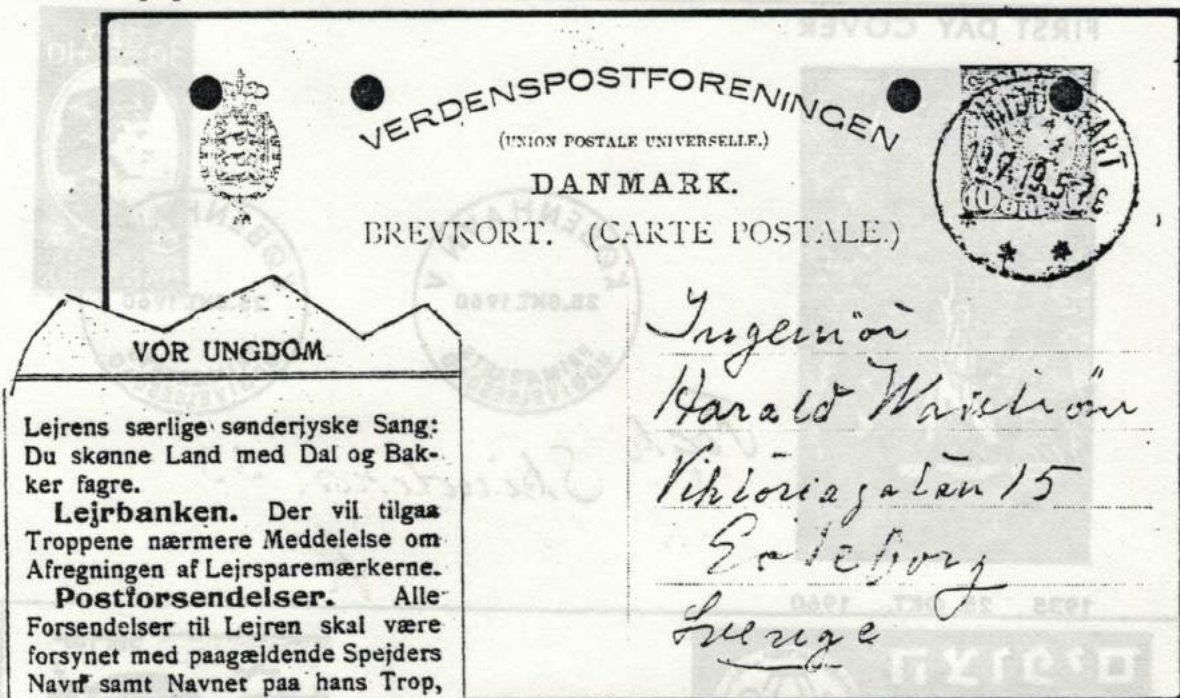 VERDENSPOSTFORENINGEN
(UNION POSTALE UNIVERSELLE.)
DANMARK.
BREVKORT. (CARTE POSTALE.)
MIDDELFART
Ingeniör
Harald
Viktoriagatan 15
Göteborg
Sverige
VOR UNGDOM
Lejrens særlige sønderjyske Sang:
Du skønne Land med Dal og Bak-
ker fagre.
Lejrbanken. Der vil tilgaa
Troppene nærmere Meddelelse om
Afregningen af Lejrsparemærkerne.
Postforsendelser. Alle
Forsendelser til Lejren skal være
forsynet med paagældende Spejders
Navn samt Navnet paa hans Trop,
FIRST DAY COVER
KØBENHAVN V
25.OKT.1960
25.OKT.1960
1935 25. OKT. 1960